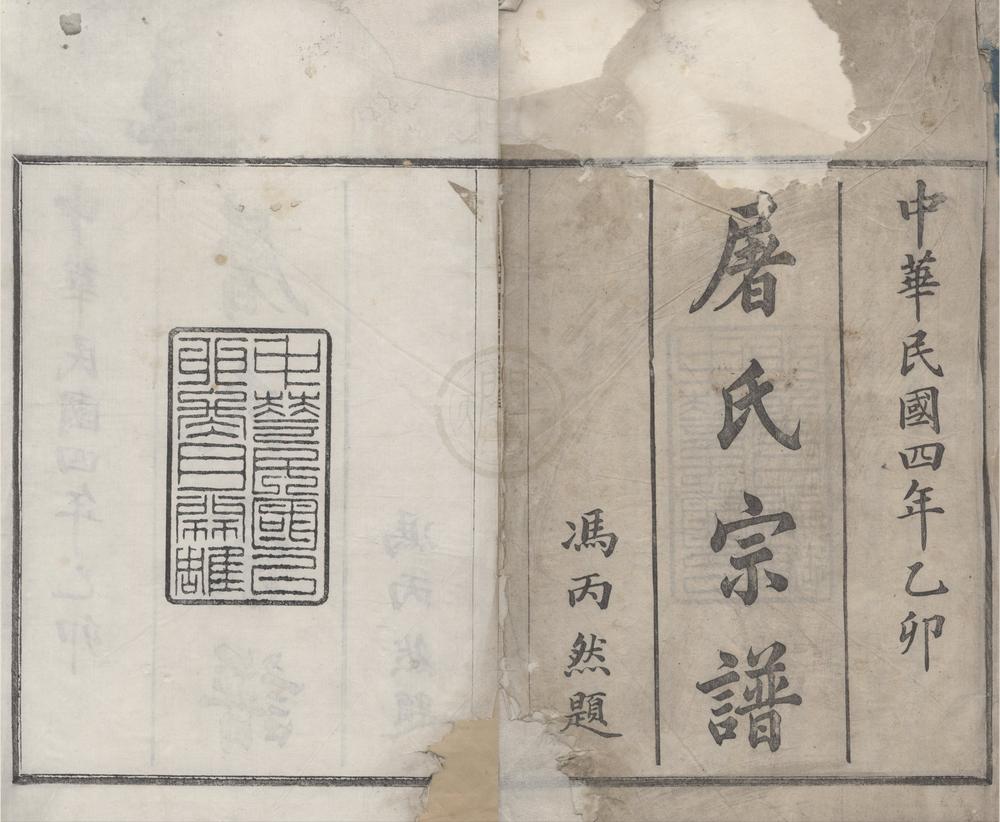 中華民國四年乙卯
屠氏宗譜
馮丙然題
中華民國乙
卯年既勤堂